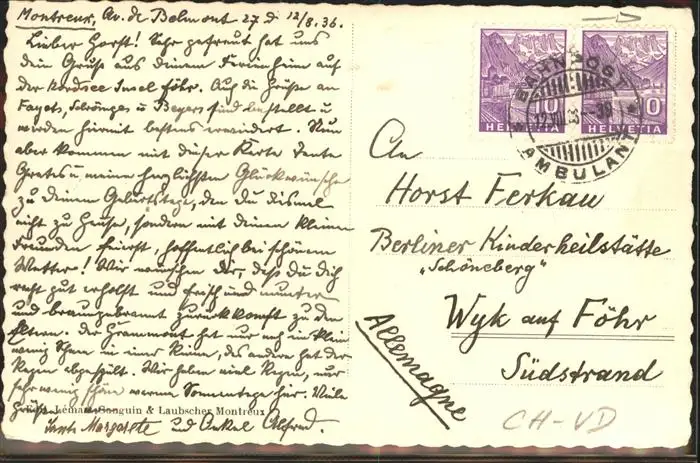 Montreux, Av. de Belmont 27 d 12/8.36.
Lieber Horst! Sehr gefreut hat uns
dein Gruss aus deinem Ferienheim auf
der Nordsee Insel Föhr. Auch die Grüsse an
Fayots, Schönges u Beyers sind bestellt u
werden hiermit bestens erwidert. Nun
aber kommen mit dieser Karte Tante
Gretes u meine herzlichsten Glückwünsche
zu deinem Geburtstage, den du diesmal
nicht zu Hause, sondern mit deinen kleinen
Freunden feierst, hoffentlich bei schönem
Wetter! Wir wünschen dir, dass du dich
recht gut erholst und frisch und munter
und braungebrannt zurückkommst zu den
Eltern. Der Grammont hat nur noch ein klein
wenig Schnee in einer Rinne, das andere hat der
Regen abgespült. Wir haben viel Regen, nur
sehr wenig schöne warme Sonnentage hier. Viele
Grüsse
Tante Margarete und Onkel Alfred.
Léman Songuin & Laubscher Montreux
10 10
HELVETIA HELVETIA
BAHNPOST
12.VIII.36
AMBULANT
An
Horst Ferkau
Berliner Kinderheilstätte
„Schöneberg"
Wyk auf Föhr
Südstrand
Allemagne
CH-VD